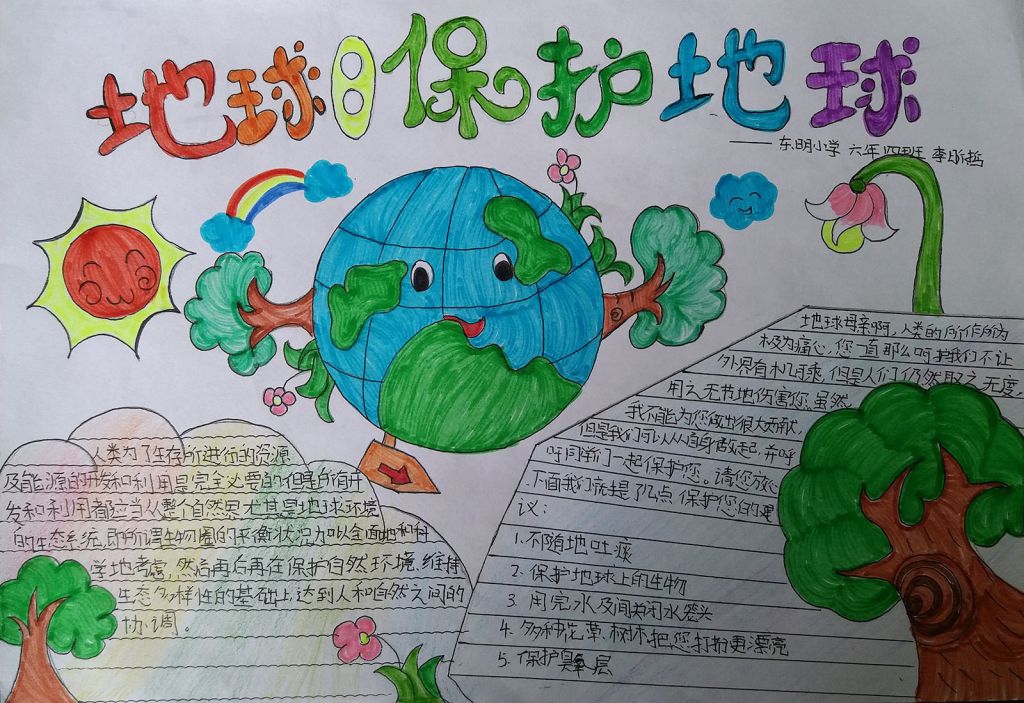 地球 保护地球
——东明小学 六年四班 李昕哲
人类为了生存所进行的资源
及能源的开发和利用是完全必要的但是所有开
发和利用都应当从整个自然界尤其是地球环境
的生态系统,即所谓生物圈的平衡状况加以全面地和科
学地考虑,然后再后再在保护自然环境、维持
生态多样性的基础上达到人和自然之间的
协调。
地球母亲啊,人类的所作所为
极为痛心,您一直那么呵护我们不让
外界有机可乘,但是人们仍然取之无度,
用之无节地伤害您,虽然
我不能为您做出很大贡献
但是我们可以从自身做起,并呼
吁同学们一起保护您。请您放心
下面我们就提了几点保护您的建
议:
1.不随地吐痰
2.保护地球上的生物
3.用完水及间关闭水笼头
4.多种花、草、树木,把您打扮更漂亮
5.保护臭氧层